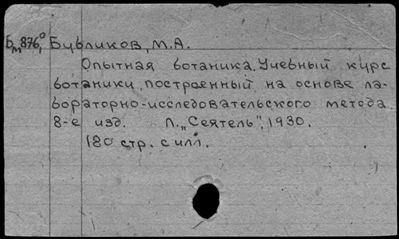 Бм876° Бубликов, М.А.
Опытная ботаника. Учебный курс
ботаники, построенный на основе ла-
бораторно-исследовательского метода
8-е изд. Л., "Сеятель", 1930.
180 стр. с илл.